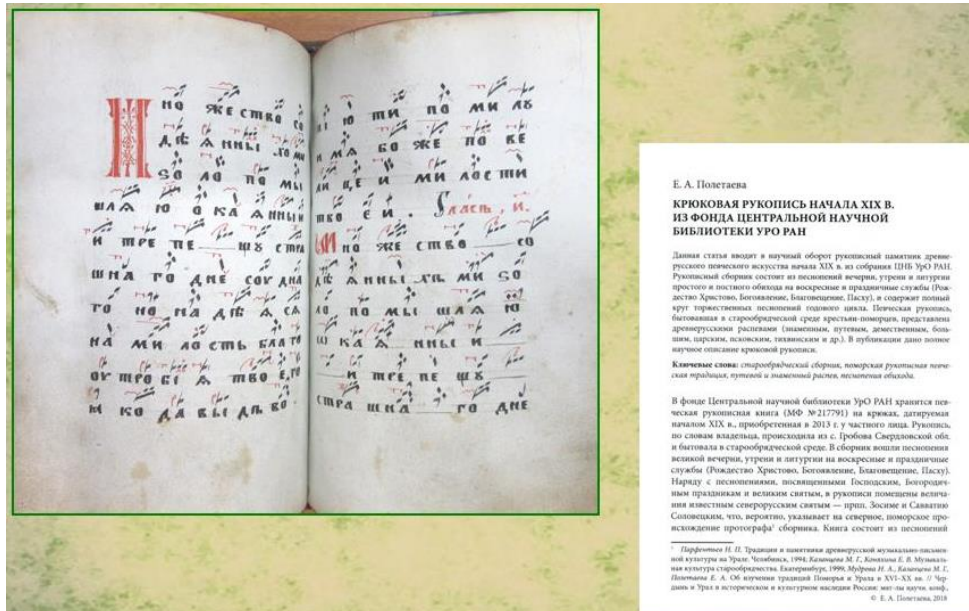 М но жество со
дѣ ѧ нны .хъ ми
ѕо ло по мы
шлѧ ю ѻ ка ѧнны и
и тре пе щу стра
шна го дне соудна
го но на дѣ ѧ сѧ
на ми лость благо
оу тро бі ѧ тво е го
ко да вы дъ во
пі ю ти по ми лу
и мѧ бо же по ве
ли це и ми лости
тво е и . Гласъ , и.
М но же ство со
дѣ ѧ нны .хъ ми ѕо
ло по мы шлѧ ю
ѻ ка ѧ нны и
и тре пе щу
стра шна го дне
Е. А. Полетаева
КРЮКОВАЯ РУКОПИСЬ НАЧАЛА XIX В.
ИЗ ФОНДА ЦЕНТРАЛЬНОЙ НАУЧНОЙ
БИБЛИОТЕКИ УРО РАН
Данная статья вводит в научный оборот рукописный памятник древне-
русского певческого искусства начала XIX в. из собрания ЦНБ УрО РАН.
Рукописный сборник состоит из песнопений вечерни, утрени и литургии
простого и постного обихода на воскресные и праздничные службы (Рож-
дество Христово, Богоявление, Благовещение, Пасху), и содержит полный
круг торжественных песнопений годового цикла. Певческая рукопись,
бытовавшая в старообрядческой среде крестьян-поморцев, представлена
древнерусскими распевами (знаменным, путевым, демественным, боль-
шим, царским, псковским, тихвинским и др.). В публикации дано полное
научное описание крюковой рукописи.
Ключевые слова: старообрядческий сборник, поморская рукописная певче-
ская традиция, путевой и знаменный распев, песнопения обихода.
В фонде Центральной научной библиотеки УрО РАН хранится пев-
ческая рукописная книга (МФ № 217791) на крюках, датируемая
началом XIX в., приобретенная в 2013 г. у частного лица. Рукопись,
по словам владельца, происходила из с. Гробова Свердловской обл.
и бытовала в старообрядческой среде. В сборник вошли песнопения
великой вечерни, утрени и литургии на воскресные и праздничные
службы (Рождество Христово, Богоявление, Благовещение, Пасху).
Наряду с песнопениями, посвященными Господским, Богородич-
ным праздникам и великим святым, в рукописи помещены велича-
ния известным северорусским святым — прпп. Зосиме и Савватию
Соловецким, что, вероятно, указывает на северное, поморское про-
исхождение протографа¹ сборника. Книга состоит из песнопений
¹ Парфентьев Н. П. Традиции и памятники древнерусской музыкально-письмен-
ной культуры на Урале. Челябинск, 1994; Казанцева М. Г., Коняхина Е. В. Музыкаль-
ная культура старообрядчества. Екатеринбург, 1999; Мудрова Н. А., Казанцева М. Г.,
Полетаева Е. А. Об изучении традиций Поморья и Урала в XVI–XX вв. // Чер-
дынь и Урал в историческом и культурном наследии России: мат-лы научн. конф.,
© Е. А. Полетаева, 2018